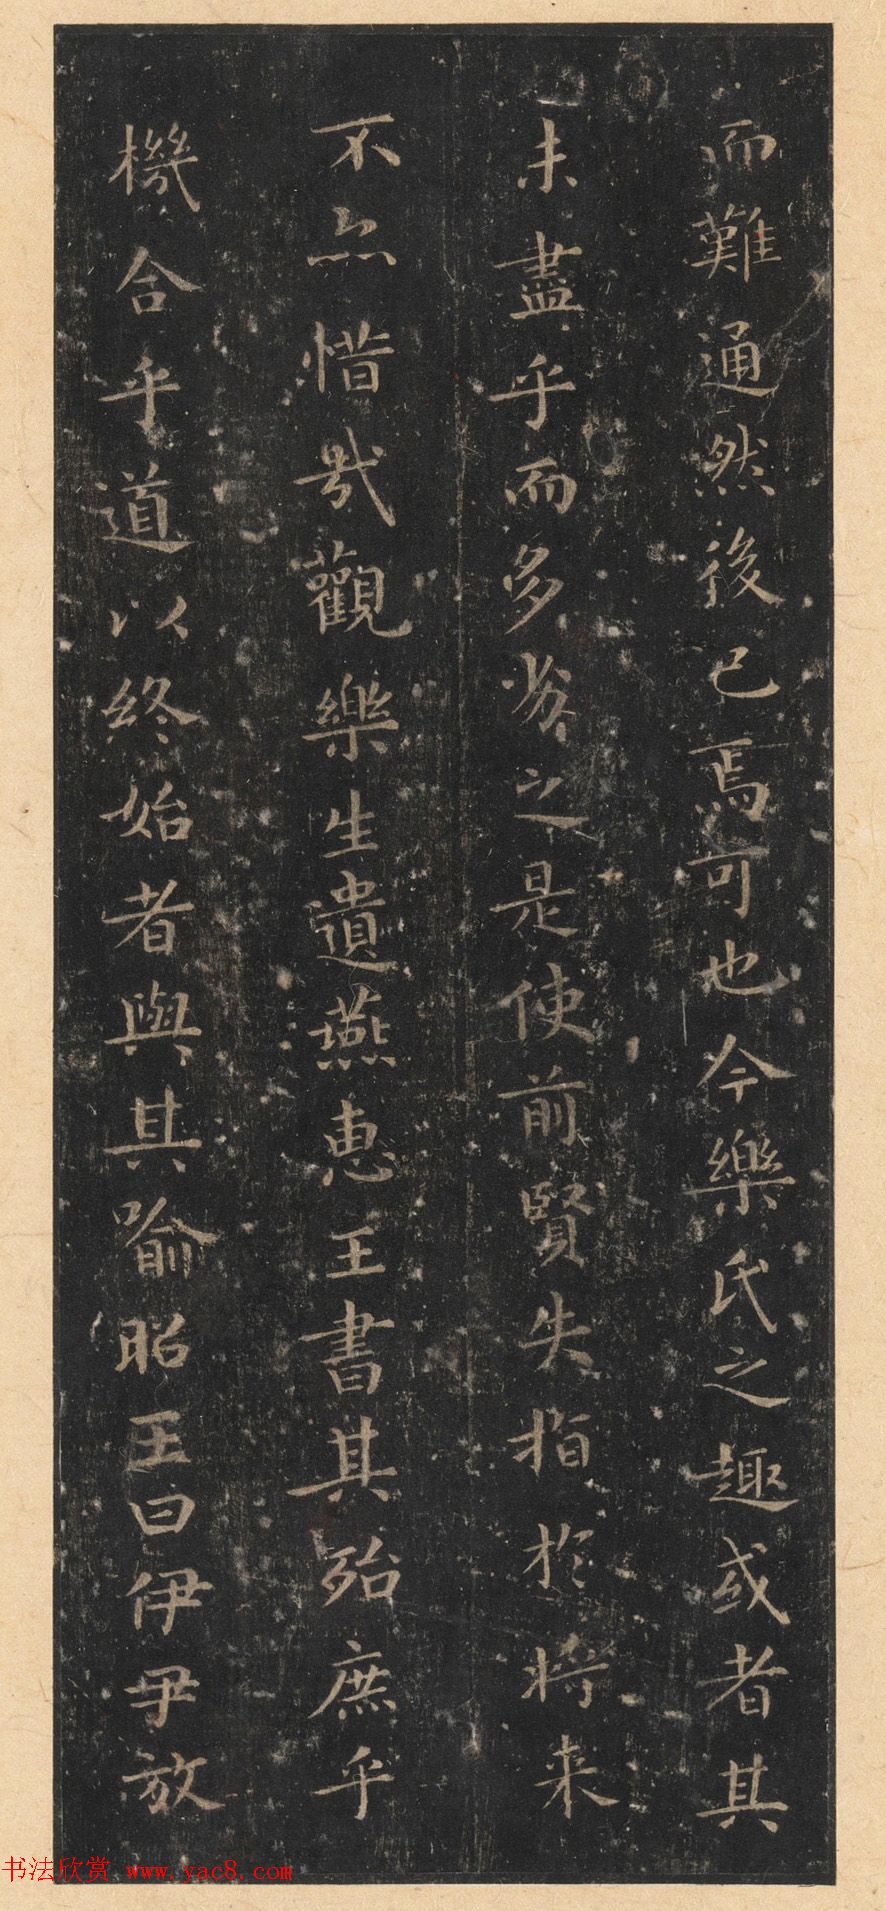 而難通然後已焉可也今樂氏之趣或者其
未盡乎而多劣之是使前賢失指於将来
不亦惜哉觀樂生遺燕惠王書其殆庶乎
機合乎道以終始者與其喻昭王曰伊尹放
书法欣赏 www.yac8.com